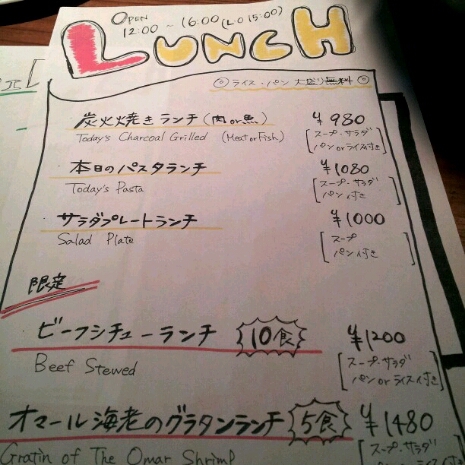 OPEN
12:00 ~ 16:00 (L.O 15:00)
LUNCH
◎ ライス・パン 大盛り無料 ◎
炭火焼きランチ (肉or魚) ¥980
Today's Charcoal Grilled (Meat or Fish)
[スープ・サラダ
パン or ライス付き]
本日のパスタランチ ¥1080
Today's Pasta
[スープ・サラダ
パン付き]
サラダプレートランチ ¥1000
Salad Plate
[スープ
パン付き]
限定
ビーフシチューランチ 10食 ¥1200
Beef Stewed
[スープ・サラダ
パン or ライス付き]
オマール海老のグラタンランチ 5食 ¥1480
Gratin of The Omar Shrimp
[スープ・サラダ
ライス付き